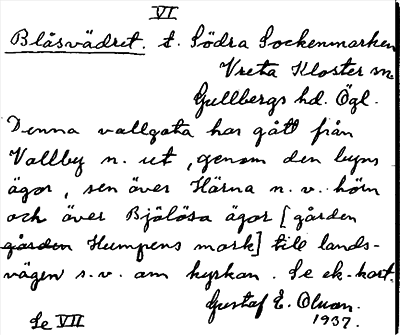 VI
Blåsvädret. t. Södra Sockenmarken
Vreta Kloster sn.
Gullbergs hd. Ögl.
Denna vallgata har gått från
Vallby n. ut, genom den byns
ägor, sen över Härna n. v. hörn
och över Bjälösa ägor [gården
gården Humpens mark] till lands-
vägen s.v. om kyrkan. Se ek-kart.
Gustaf E. Olsson.
1937.
Se VII